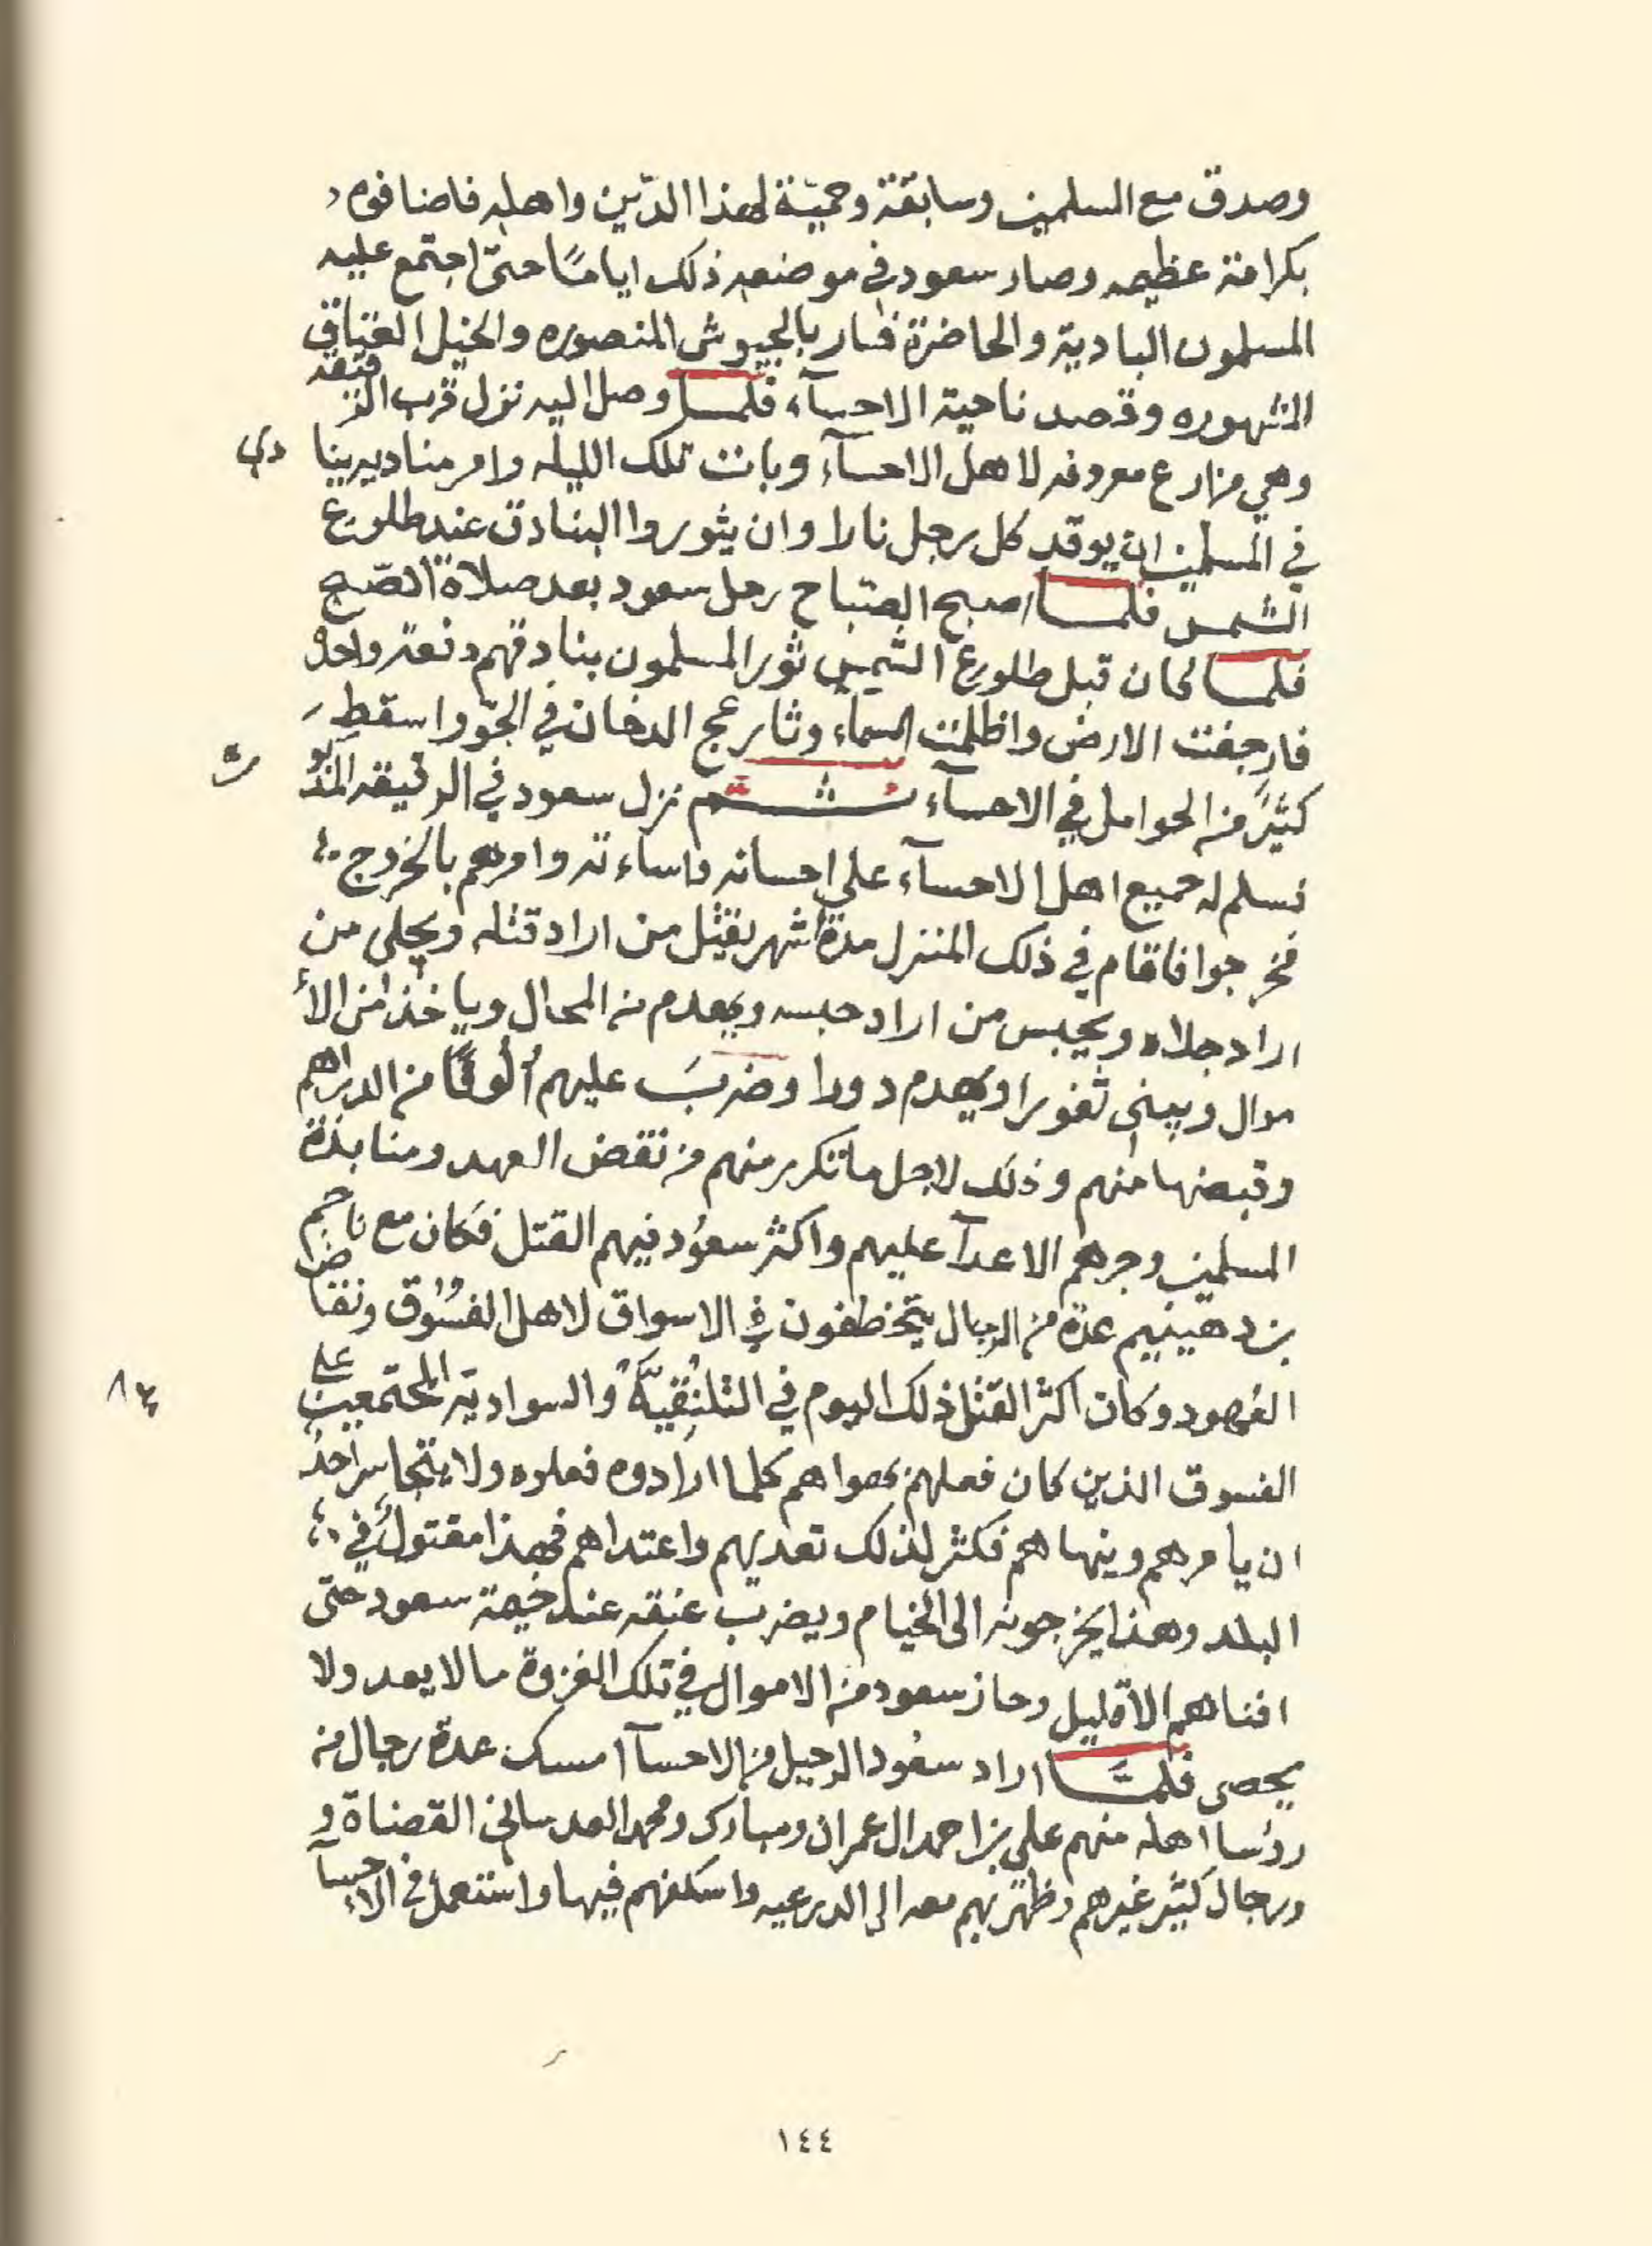 وصدق مع المسلمين وسابقة وحميّة لهذا الدّين واهله فاضافوه
بكرامة عظيمه وصار سعود في موضعه ذلك اياماً حتّى اجتمع عليه
المسلمون البادية والحاضرة فسار بالجيوش المنصوره والخيل العتاق
المشهوره وقصد ناحية الاحسآء فلما وصل اليه نزل قرب الرقيقه
وهي مزارع معروفه لاهل الاحسآء وبات تلك الليله وامر مناديه ينادي
في المسلمين ان يوقد كل رجل نارا وان يثوروا البنادق عند طلوع
الشمس فلما اصبح الصباح رحل سعود بعد صلاة الصبح
فلما كان قبل طلوع الشمس ثور المسلمون بنادقهم دفعة واحدة
فارجفت الارض واظلمت السماء وثار عج الدخان في الجو واسقط
كثير من الحوامل في الاحسآء ثم نزل سعود في الرقيقه المذكورة
فسلم له جميع اهل الاحسآء على احسانه واساءته وامرهم بالخروج
فخرجوا فاقام في ذلك المنزل مدة اشهر يقتل من اراد قتله ويجلى من
اراد جلاه ويحبس من اراد حبسه ويهدم من المحال وياخذ من الأ
موال ويبنى ثغورا ويهدم دورا وضربَ عليهم اُلوفًا من الدراهم
وقبضها منهم وذلك لاجل ما تكرر منهم من نقض العهد ومنابذة
المسلمين وجرهم الاعدآ عليهم واكثر سعود فيهم القتل فكان مع ناجم
بن دهينيم عدة من الرجال يتخطفون في الاسواق لاهل الفسُوق ونقاض
العهود وكان اكثر القتل ذلك اليوم في والسوادية المجتمعين على
الفسوق الذين كان فعلهم بهواهم كلما ارادوه فعلوه ولا يتجاسر احدُ
ان يامرهم وينهاهم فكثر لذلك تعديهم واعتداهم فهذا مقتولُ في
البلد وهذا يخرجونه الى الخيام ويضرب عنقه عند خيمة سعود حتى
افناهم الا قليل وحاز سعود من الاموال في تلك الغزوة ما لا يعد ولا
يحصى فلمَّا اراد سعود الرحيل من الاحسآ امسك عدة رجال من
روسا اهله منهم علي بن احمد ال عمران ومبارك ومحمد العدساني القضاة و
ورجال كثير غيرهم وظهر بهم معه الى الدرعيه واسكنهم فيها واستعمل في الاحسآ
١٤٤